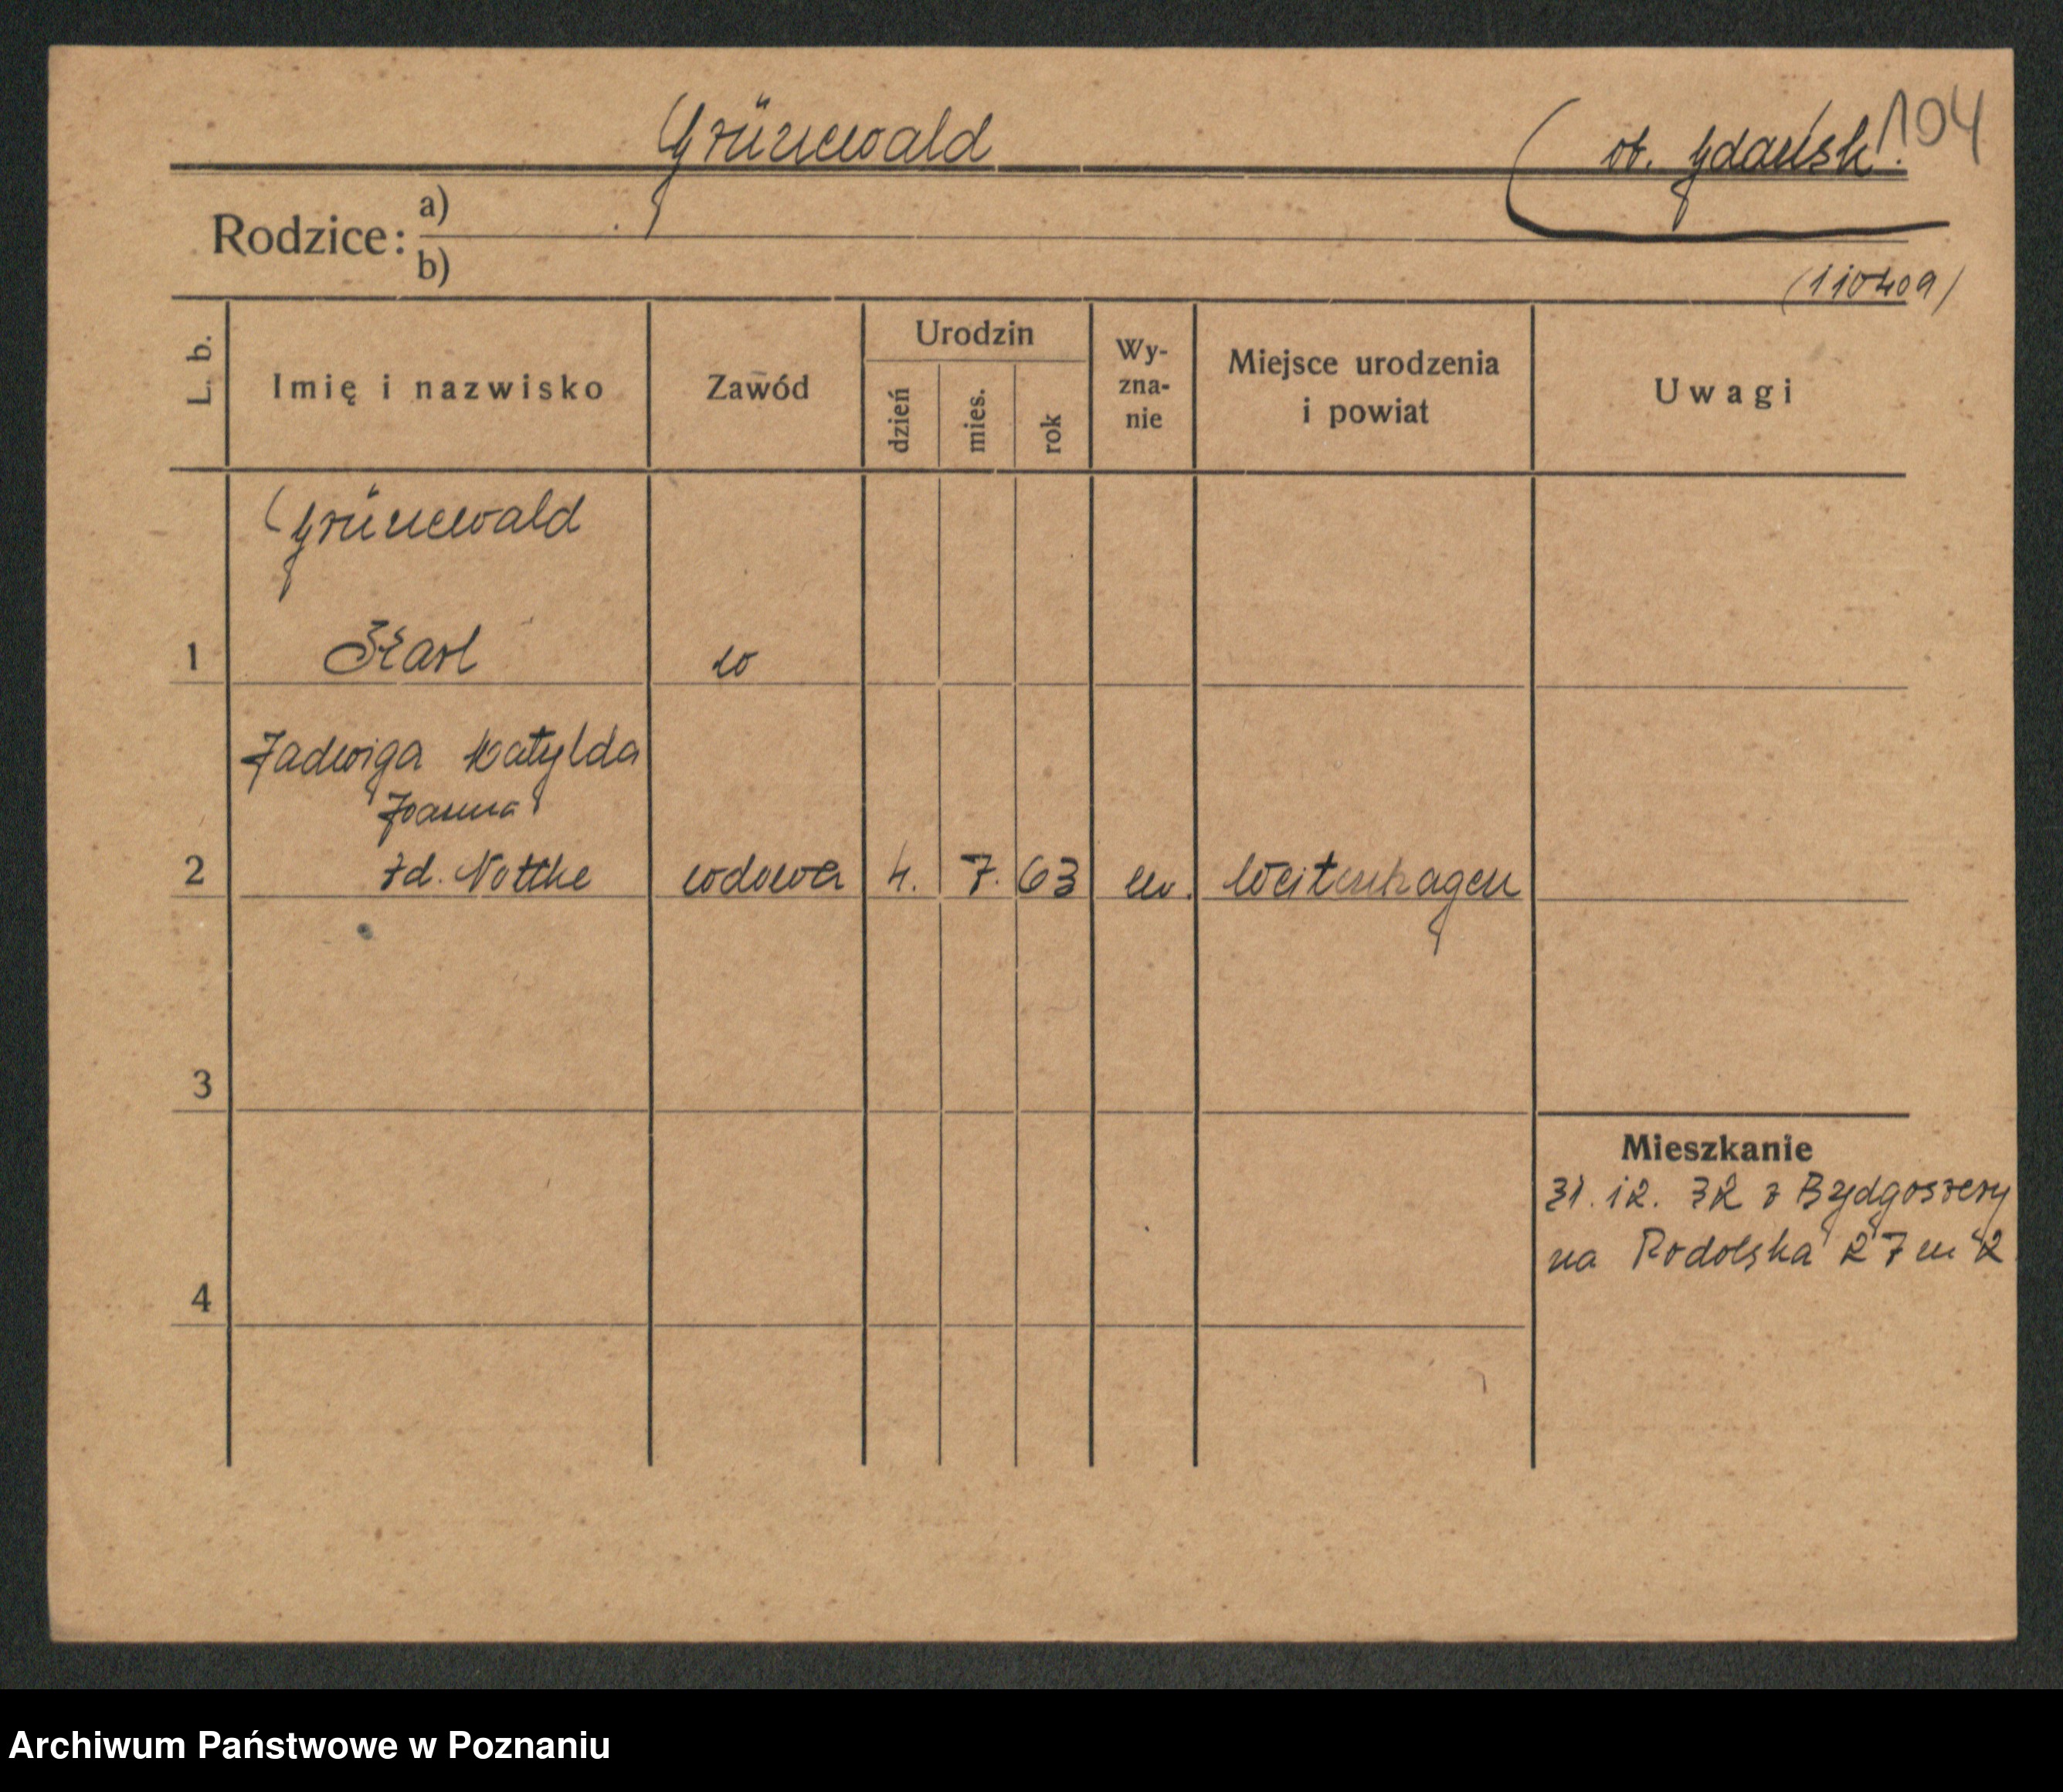 Grünewald
ob. Gdańsk.
104
Rodzice: a)
b)
(110409)
L. b.
Imię i nazwisko
Zawód
Urodzin
dzień
mies.
rok
Wy-
zna-
nie
Miejsce urodzenia
i powiat
Uwagi
Grünewald
1 Karl w
Jadwiga Matylda
Joanna
2 zd. Nottke wdowa 4. 7. 63 ew. Weitenhagen
3
Mieszkanie
31. 12. 32 z Bydgoszczy
na Podolska 27 m 2
4
Archiwum Państwowe w Poznaniu